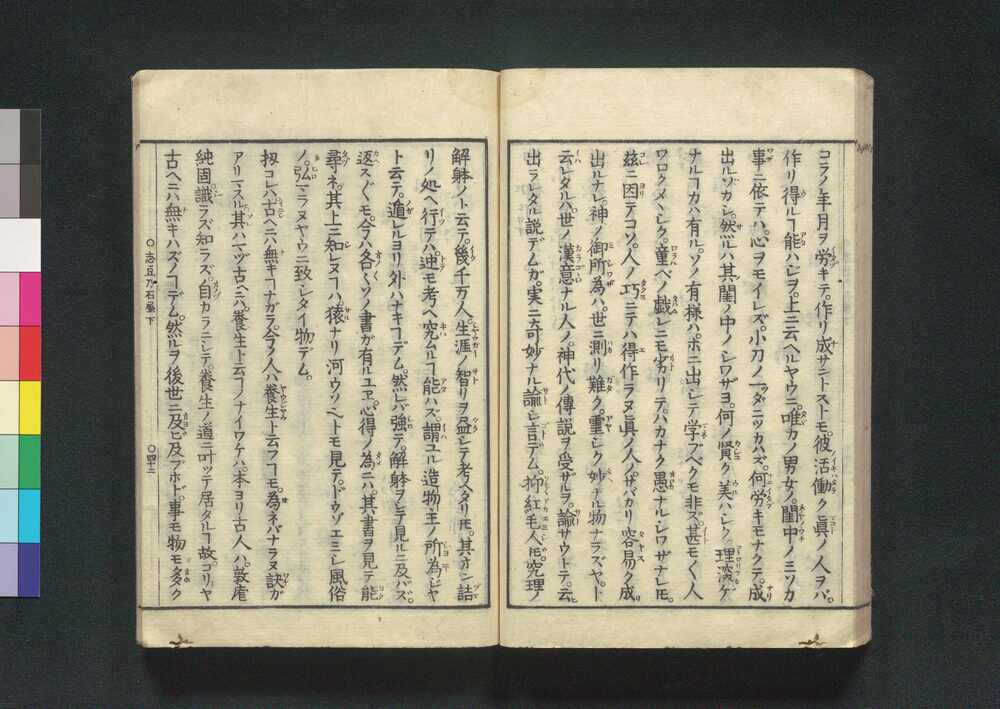 コラノ年月ヲ労キテ。作リ成サントストモ。彼活働ク眞ノ人ヲバ。
作リ得ルヿ能ハじヲ。上ニ云ヘルヤウニ。唯カノ男女ノ。閨中ノミソカ
事ニ依テハ。心ヲモイレズ。小刀ノ一ツダニツカハズ。何労キモナクテ。成
出ルゾカシ。然ルハ其閨ノ中ノシワザヨ。何ノ賢ク美ハシク。理深ゲ
ナルヿカハ有ル。ソノ有様ハホニ出シテ学ブベクモ非ズ。甚モ〱人
ワロクメヽシク。童ベノ戯レニモ劣リテ。ハカナク愚ナルシワザナレ𪜈。
茲ニ因テコソ。人ノ巧ニテハ得作ラヌ眞ノ人ノ。ザバカリ容易ク成
出ルナレ。神ノ御所為ハ。世ニ測リ難ク。霊シク妙ナル物ナラズヤ。ト
云レタルハ。世ノ漢意ナル人ノ。神代ノ傳説ヲ受ザルヲ。諭サウトテ。云
出ラレタル説デムガ。実ニ奇妙ナル諭シ言デム。抑紅毛人𪜈。究理ノ
解躰ノト云テ。幾千万人。生涯ノ智リヲ盡シテ考ヘタリ𪜈。其オシ詰
リノ処ヘ行テハ。迚モ考ヘ究ムルヿ能ハズ。謂ユル造物主ノ所為ジヤ
ト云テ。遁レルヨリ外ハナキヿデム。然レバ強テ。解躰ヲシテ見ルニ及バズ。
返スぐモ。今ハ各〱ソノ書ガ有ルユヱ。心得ノ為ニハ。其書ヲ見テ能
尋ネ。其上ニ知レヌヿハ。猿ナリ河ウソヘトモ見テ。ドウゾエミシ風俗
ノ。弘マラヌヤウニ致シタイ物デム。
扨コレハ古ヘニハ無キヿナガラ。今ノ人ハ養生ト云フヿモ。為ネバナラヌ訣ガ
アリマスル。其ハマヅ古ヘニハ。養生ト云フヿノナイワケハ。本ヨリ古人ハ。敦厖
純固識ラズ知ラズノ自カラニシテ。養生ノ道ニ叶ッテ居タルヿ故。コリヤ
古ヘニハ無キハズノヿデム。然ルヲ後世ニ及ビ及ブホド。事モ物モ多ク
○志豆乃石屋下
○四十二